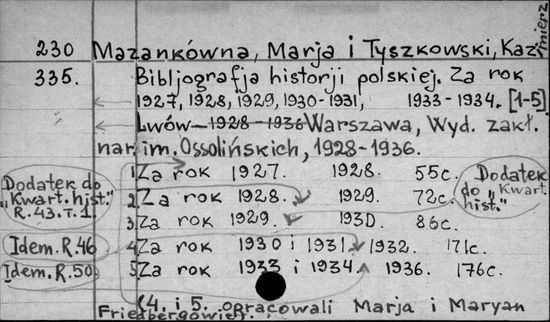 230 Mazankówna, Marja i Tyszkowski, Kazimierz
335. Bibljografja historji polskiej. Za rok
1927, 1928, 1929, 1930-1931, 1933-1934. [1-5]
Lwów - 1928 - 1936 Warszawa, Wyd. zakł.
nar. im. Ossolińskich, 1928-1936.
1 Za rok 1927. 1928. 55c.
2 Za rok 1928. 1929. 72c.
3 Za rok 1929. 1930. 86c.
4 Za rok 1930 i 1931. 1932. 171c.
5 Za rok 1933 i 1934. 1936. 176c.
(4. i 5. opracowali Marja i Maryan
Friedbergowie).
Dodatek do
"Kwart. hist."
R. 43. T. 1.
Idem. R. 46
Idem. R. 50
Dodatek
do "Kwart.
hist."